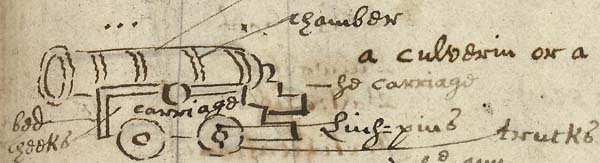 chamber
a culverin or a
he carriage
carriage
bed
cheeks
Linch=pins
trucks